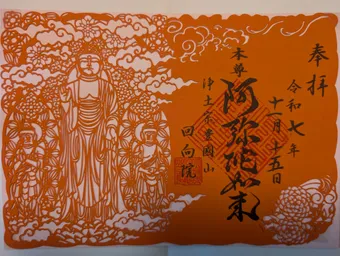 奉拝
令和七年
十一月十五日
本尊
阿弥陀如来
浄土宗豊国山
回向院